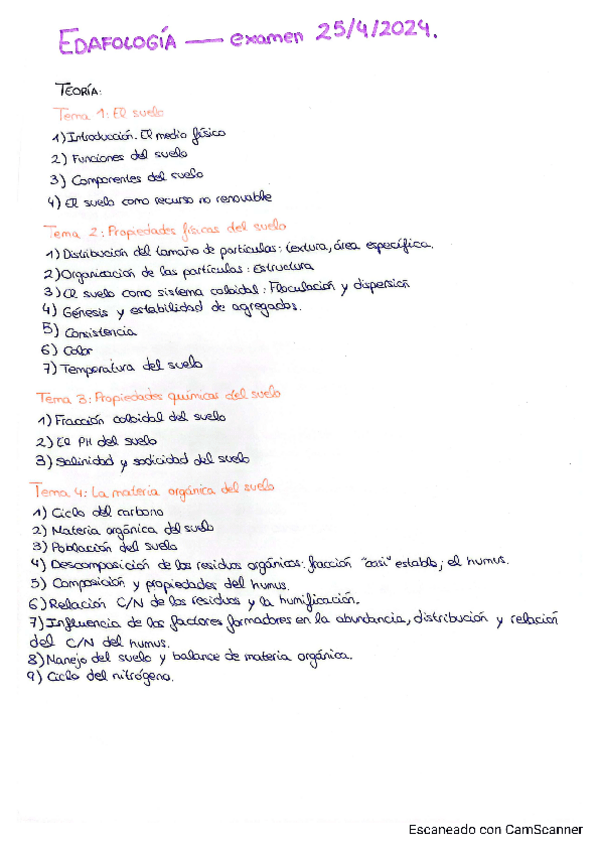 EDAFOLOGÍA — examen 25/4/2024.
TEORÍA:
Tema 1: El suelo
1) Introducción. El medio físico
2) Funciones del suelo
3) Componentes del suelo
4) El suelo como recurso no renovable
Tema 2: Propiedades físicas del suelo
1) Distribución del tamaño de partículas: textura, área específica.
2) Organización de las partículas: Estructura
3) El suelo como sistema coloidal: Floculación y dispersión
4) Génesis y estabilidad de agregados.
5) Consistencia
6) Color
7) Temperatura del suelo
Tema 3: Propiedades químicas del suelo
1) Fracción coloidal del suelo
2) El PH del suelo
3) Salinidad y sodicidad del suelo
Tema 4: La materia orgánica del suelo
1) Ciclo del carbono
2) Materia orgánica del suelo
3) Población del suelo
4) Descomposición de los residuos orgánicos: fracción "casi" estable; el humus.
5) Composición y propiedades del humus.
6) Relación C/N de los residuos y la humificación.
7) Influencia de los factores formadores en la abundancia, distribución y relación
del C/N del humus.
8) Manejo del suelo y balance de materia orgánica.
9) Ciclo del nitrógeno.
Escaneado con CamScanner